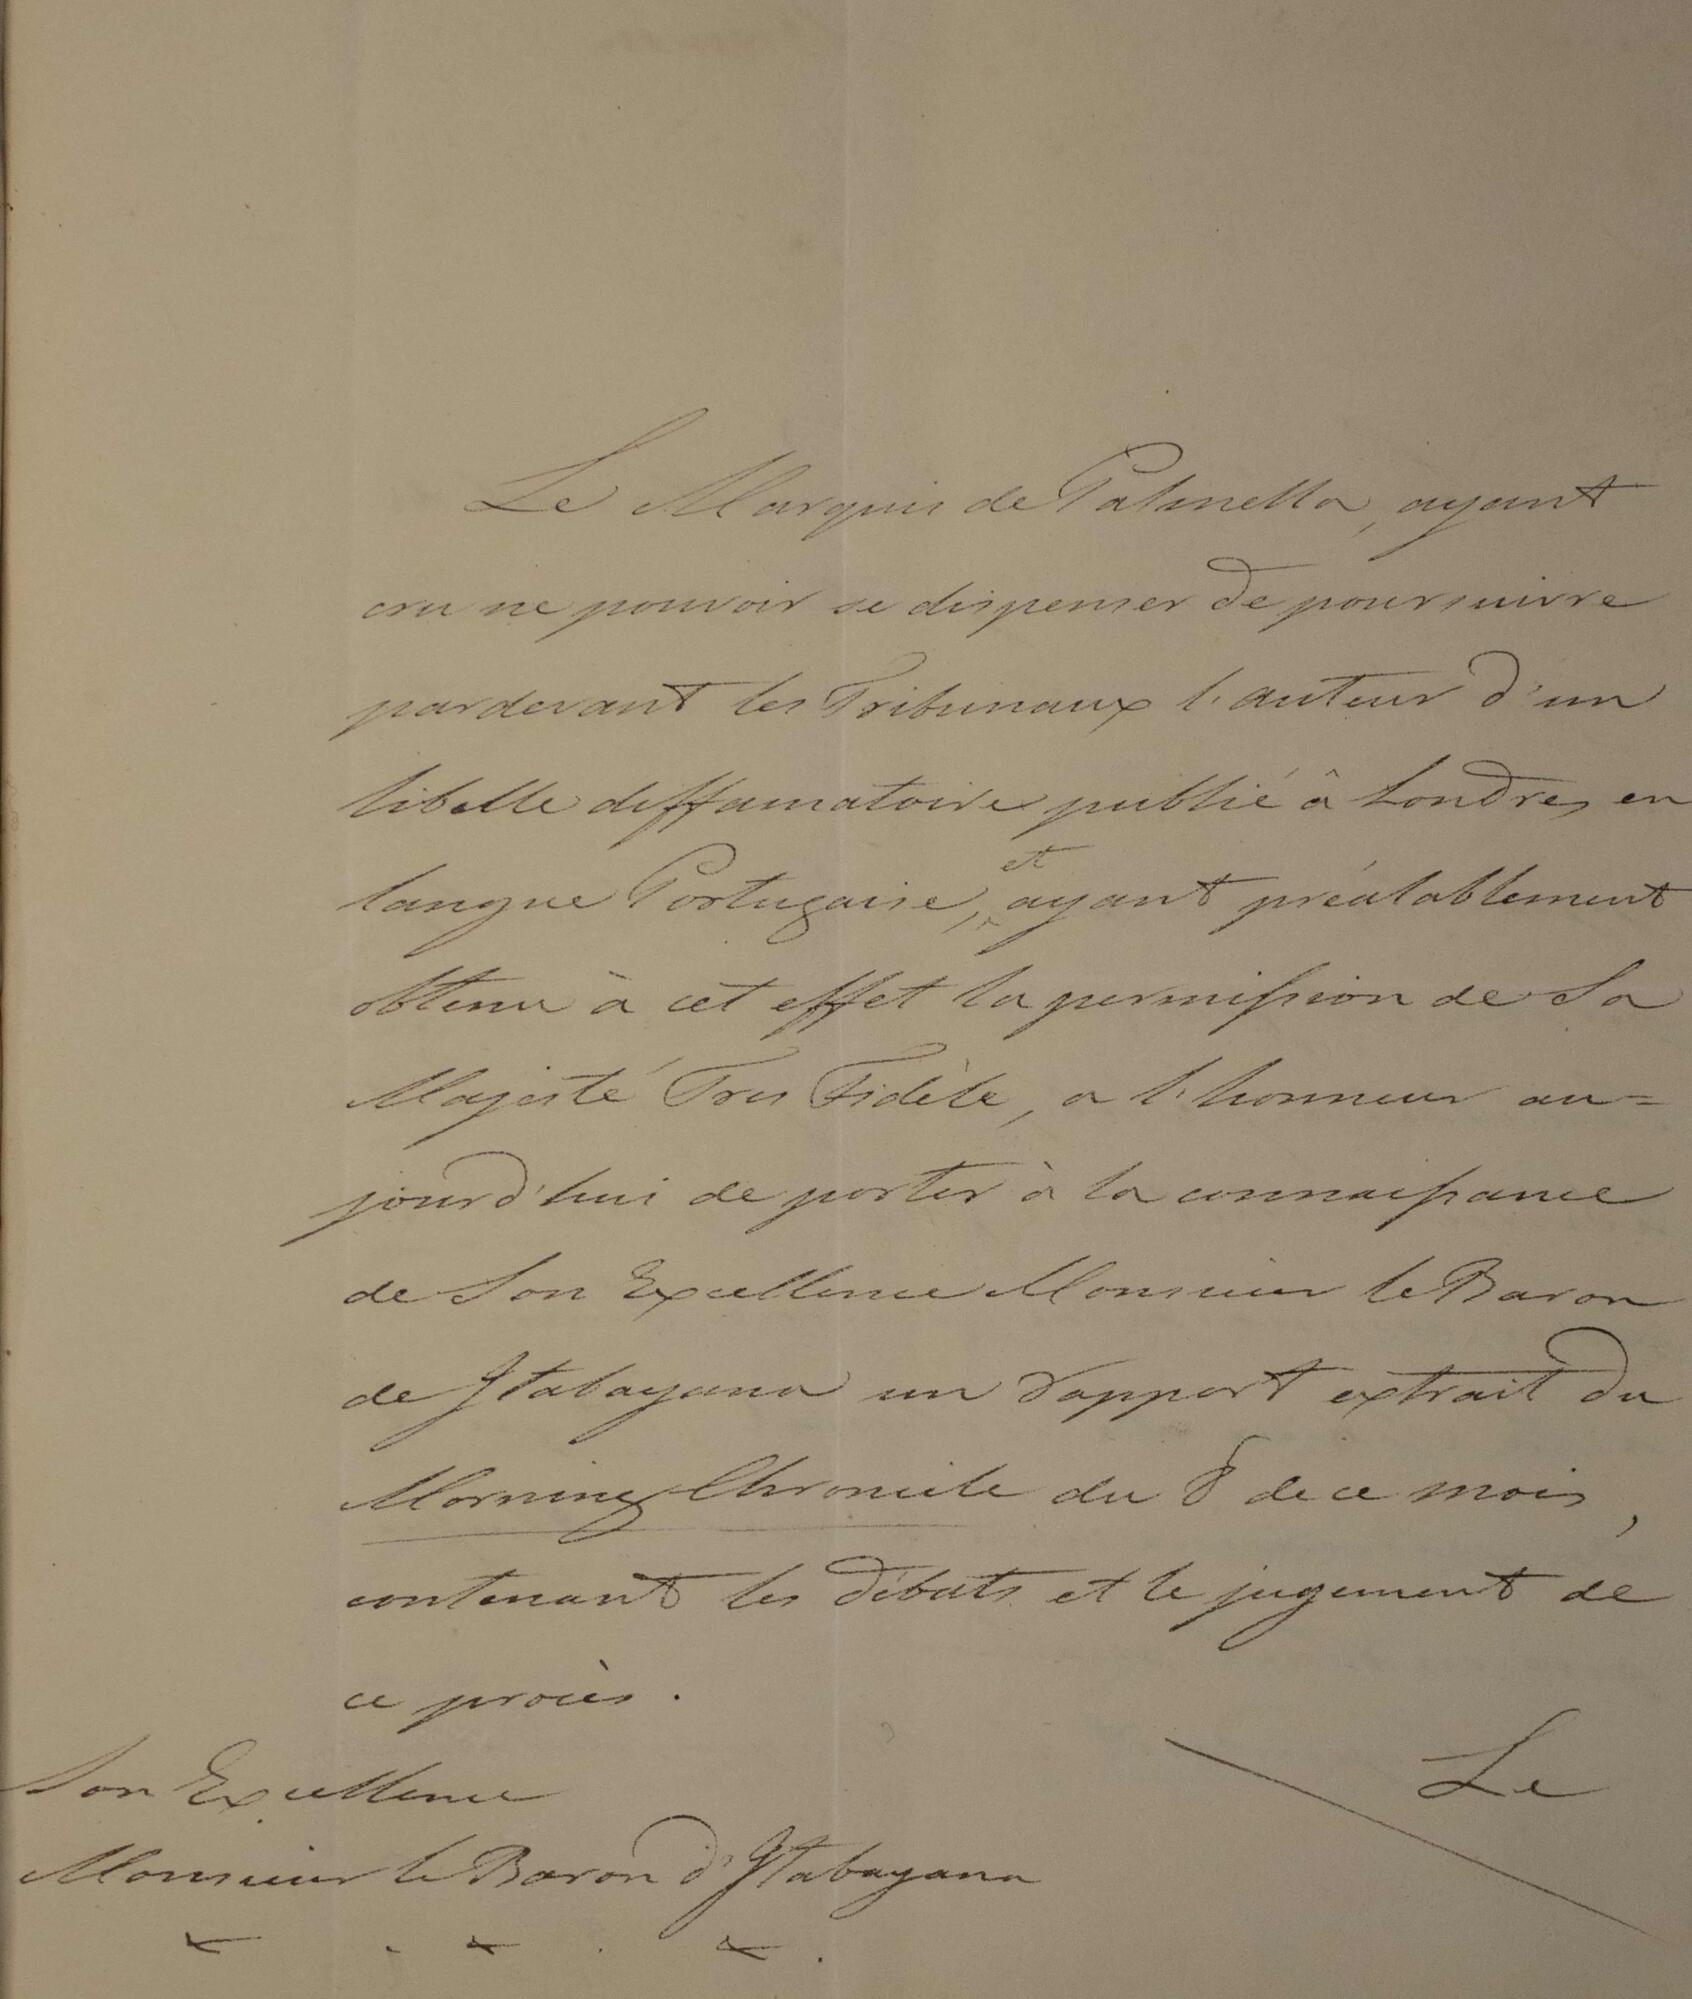 Le Marquis de Palmella, ayant
cru ne pouvoir se dispenser de poursuivre
pardevant les Tribunaux l'auteur d'un
libelle diffamatoire publié à Londres en
langue Portugaise, et ayant préalablement
obtenu à cet effet la permission de Sa
Majesté Tres Fidèle, a l'honneur au=
jourd'hui de porter à la connaissance
de Son Excellence Monsieur le Baron
de Itabayana un rapport extrait du
Morning Chronicle du 8 de ce mois,
contenant les débats et le jugement de
ce procès.
Le
Son Excellence
Monsieur le Baron d'Itabayana